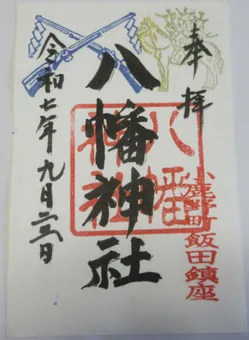 奉拝
八幡神社
八幡神社
小鹿野町飯田鎮座
令和七年九月二三日